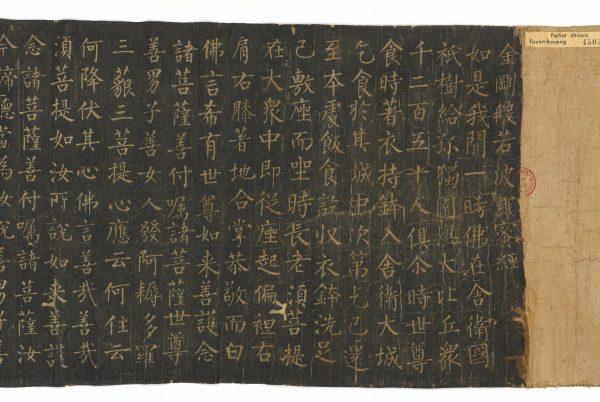 Pelliot chinois
Touen-houang 4503
金剛般若波羅蜜經
如是我聞一時佛在舍衛國
祇樹給孤獨園與大比丘衆
千二百五十人俱尒時世尊
食時著衣持鉢入舍衛大城
乞食於其城中次第乞已還
至本處飯食訖収衣鉢洗足
已敷座而坐時長老須菩提
在大衆中即從座起偏袒右
肩右膝著地合掌恭敬而白
佛言希有世尊如来善護念
諸菩薩善付嘱諸菩薩世尊
善男子善女人發阿耨多羅
三藐三菩提心應云何住云
何降伏其心佛言善哉善哉
須菩提如汝所說如来善護
念諸菩薩善付嘱諸菩薩汝
今諦聽當為汝說善男子善